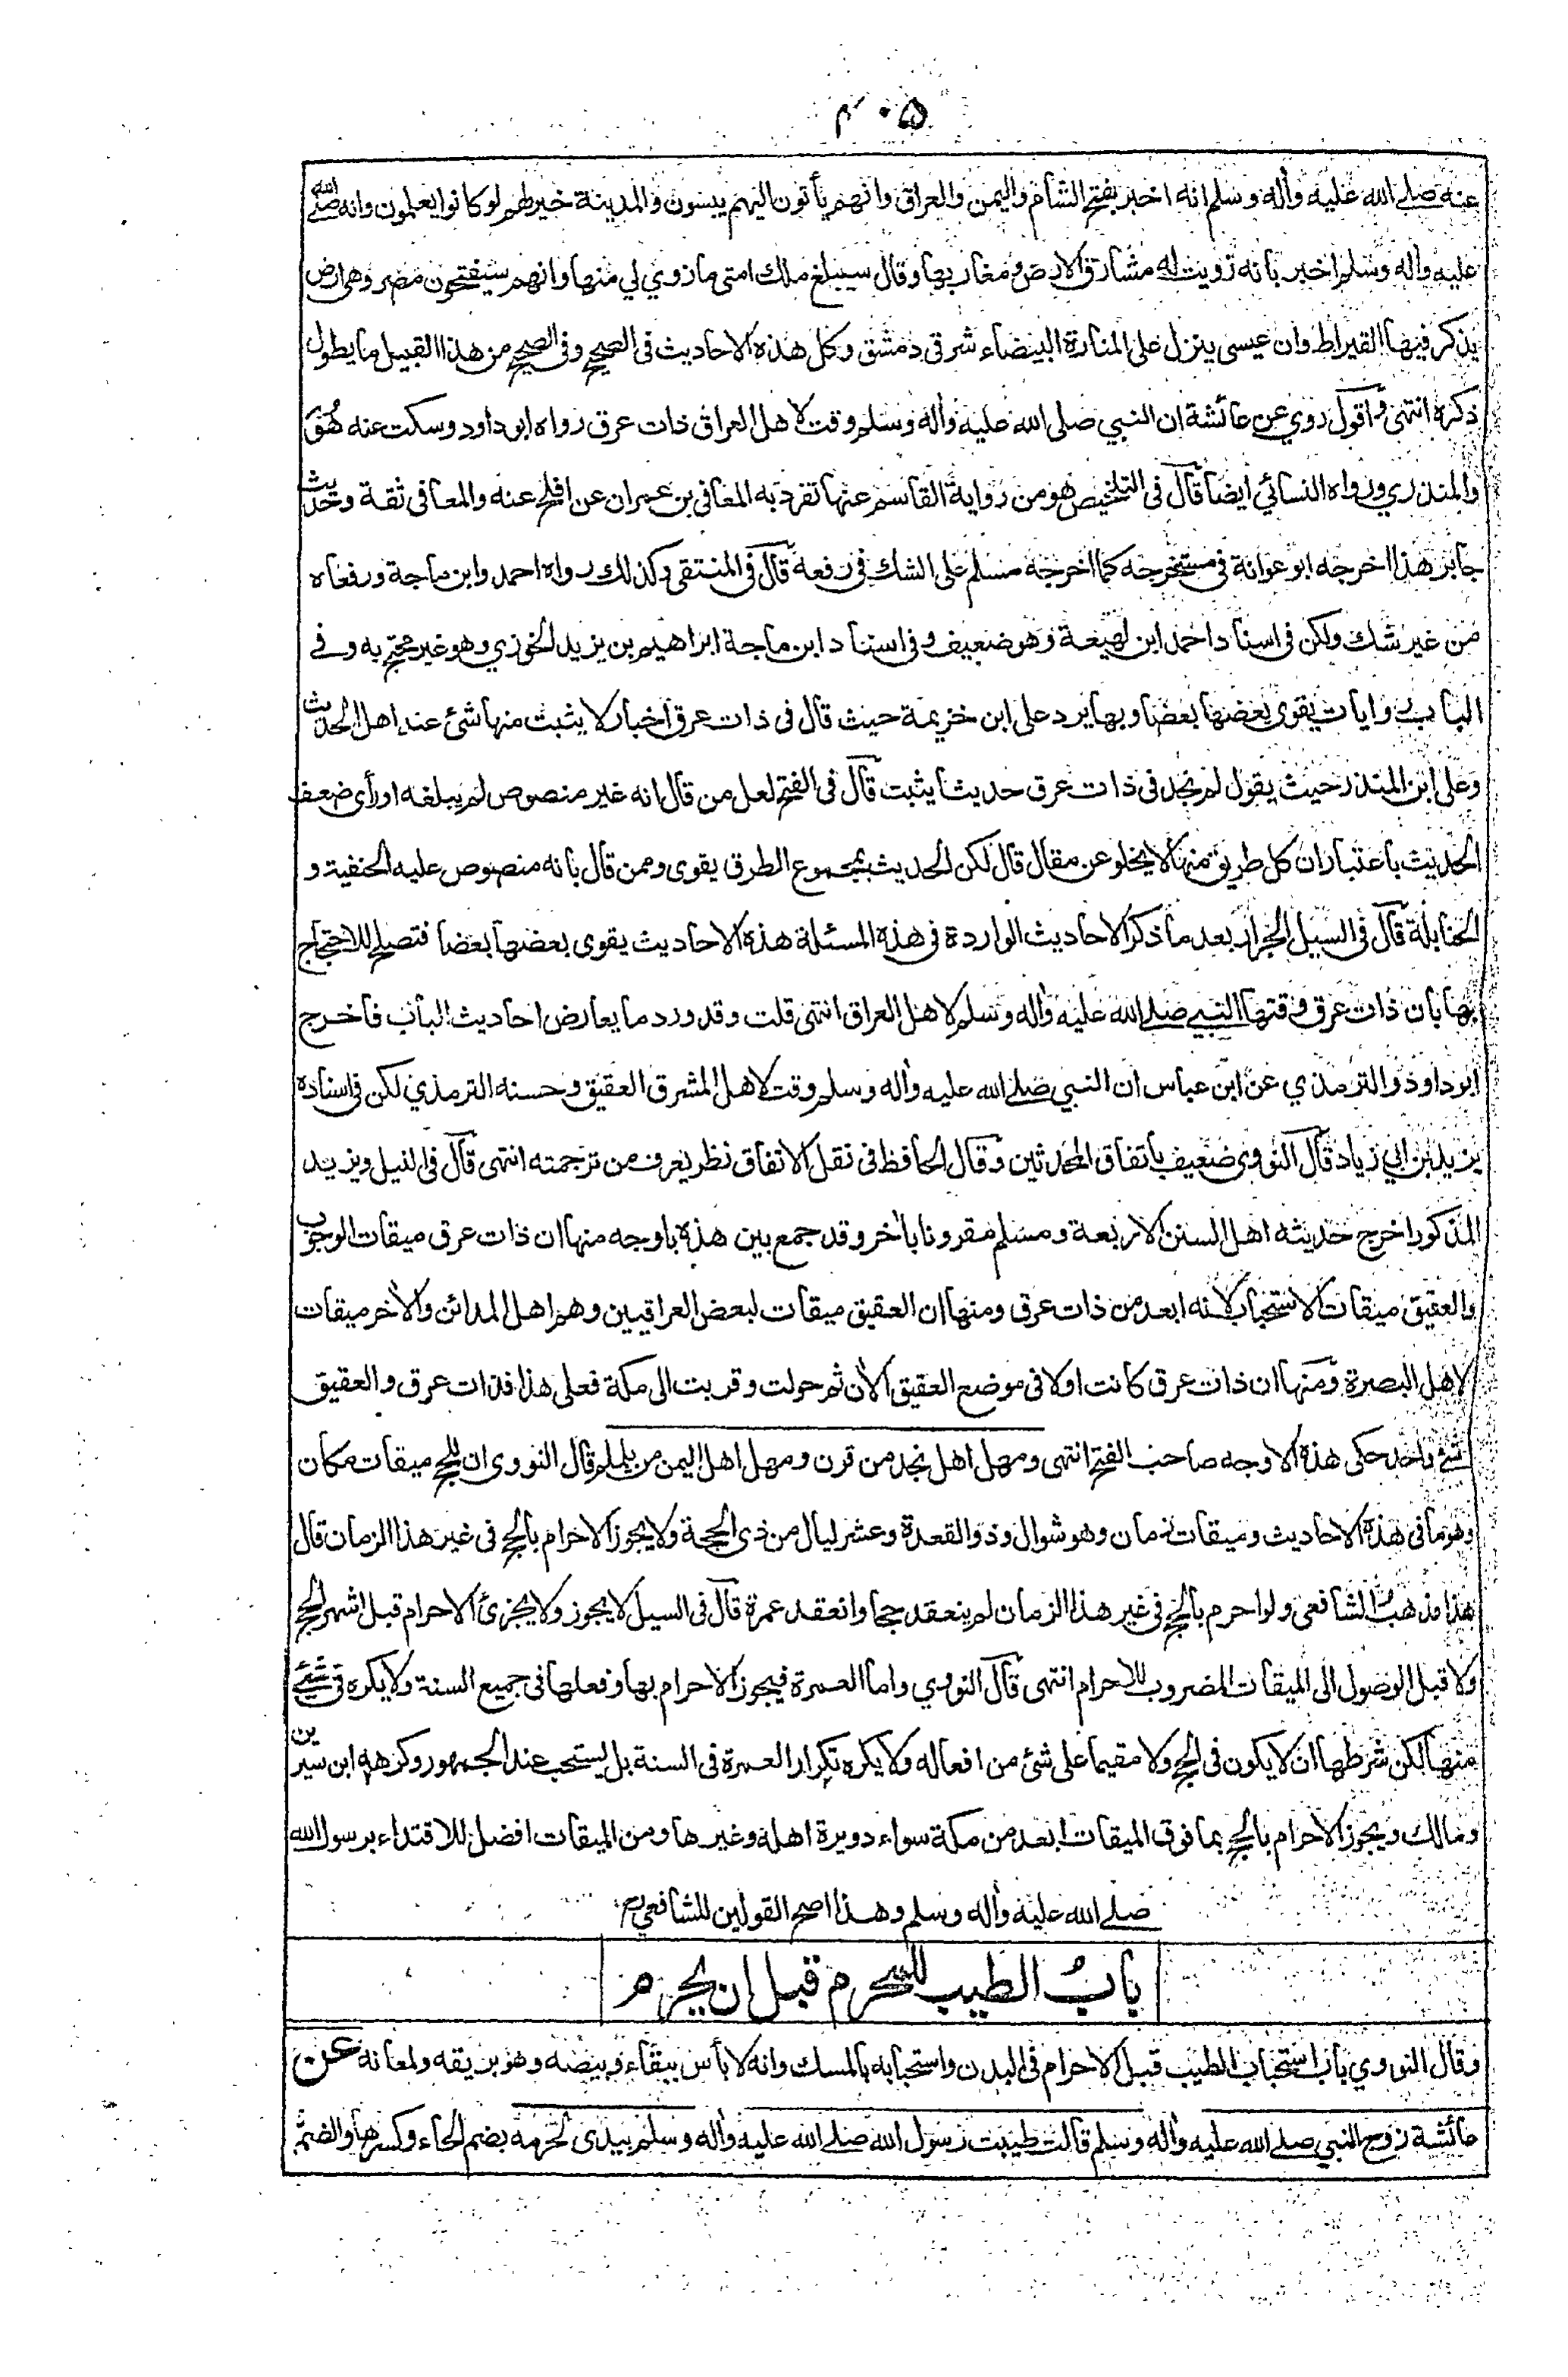 ٤٠٥
عنه صلے الله عليه وأله وسلم انه اخبر بفتح الشام واليمن والعراق وانهم يأتون اليهم يبسون والمدينة خير لهم لو كانوا يعلمون وانه صلے الله
عليه واله وسلم اخبر بانه زويت له مشارق الارض ومغاربها وقال سيبلغ ملك امتى ما زوي لي منها وانهم سيفتحون مصر وهى ارض
يذكر فيها القيراط وان عيسى ينزل على المنارة البيضاء شرقى دمشق وكل هذه الاحاديث فى الصحيح وفى الصحيح من هذا القبيل ما يطول
ذكره انتهى واقول روي عن عائشة ان النبي صلى الله عليه وأله وسلم وقت لاهل العراق ذات عرق رواه ابو داود وسكت عنه هو
والمنذري ورواه النسائي ايضا قال فى التلخيص هو من رواية القاسم عنها تفرد به المعافى بن عمران عن افلح عنه والمعافى ثقة وحديث
جابر هذا اخرجه ابو عوانة فى مستخرجه كما اخرجه مسلم على الشك فى رفعه قال فى المنتقى وكذلك رواه احمد وابن ماجة ورفعاه
من غير شك ولكن فى اسناد احمد ابن لهيعة وهو ضعيف وفى اسناد ابن ماجة ابراهيم بن يزيد الخوزي وهو غير محتج به وفے
الباب روايات يقوى بعضها بعضا وبها يرد على ابن خزيمة حيث قال فى ذات عرق اخبار لا يثبت منها شئ عند اهل الحديث
وعلى ابن المنذر حيث يقول لم نجد فى ذات عرق حديثا يثبت قال فى الفتح لعل من قال انه غير منصوص لم يبلغه او رأى ضعف
الحديث باعتبار ان كل طريق منها لا يخلو عن مقال قال لكن الحديث بمجموع الطرق يقوى وممن قال بانه منصوص عليه الحنفية و
الحنابلة قال فى السيل الجرار بعد ما ذكر الاحاديث الواردة فى هذه المسئلة هذه الاحاديث يقوى بعضها بعضا فتصلح للاحتجاج
بها بان ذات عرق وقتها النبي صلے الله عليه وأله وسلم لاهل العراق انتهى قلت وقد ورد ما يعارض احاديث الباب فاخرج
ابو داود والترمذي عن ابن عباس ان النبي صلے الله عليه واله وسلم وقت لاهل المشرق العقيق وحسنه الترمذي لكن فى اسناده
يزيد بن ابي زياد قال النووى ضعيف باتفاق المحدثين وقال الحافظ فى نقل الاتفاق نظر يعرف من ترجمته انتهى قال فى النيل ويزيد
المذكور اخرج حديثه اهل السنن الاربعة ومسلم مقرونا بأخر وقد جمع بين هذه باوجه منها ان ذات عرق ميقات الوجوب
والعقيق ميقات الاستحباب لانه ابعد من ذات عرق ومنها ان العقيق ميقات لبعض العراقيين وهم اهل المدائن والأخر ميقات
لاهل البصرة ومنها ان ذات عرق كانت اولا فى موضع العقيق الأن ثم حولت وقربت الى مكة فعلى هذا فذات عرق والعقيق
شئ واحد حكى هذه الاوجه صاحب الفتح انتهى ومهل اهل نجد من قرن ومهل اهل اليمن من يلملم قال النووى ان للحج ميقات مكان
وهو ما فى هذه الاحاديث وميقات زمان وهو شوال وذو القعدة وعشر ليال من ذى الحجة ولا يجوز الاحرام بالحج فى غير هذا الزمان قال
هذا مذهب الشافعى ولو احرم بالحج فى غير هذا الزمان لم ينعقد حجا وانعقد عمرة قال فى السيل لا يجوز ولا يجزئ الاحرام قبل اشهر الحج
ولا قبل الوصول الى الميقات المضروب للاحرام انتهى قال النووي واما العمرة فيجوز الاحرام بها وفعلها فى جميع السنة ولا يكره فى شئے
منها لكن شرطها ان لا يكون فى الحج ولا مقيما على شئ من افعاله ولا يكره تكرار العمرة فى السنة بل يستحب عند الجمهور وكرهه ابن سيرين
ومالك ويجوز الاحرام بالحج بما فوق الميقات ابعد من مكة سواء دويرة اهله وغيرها ومن الميقات افضل للاقتداء برسول الله
صلے الله عليه وأله وسلم وهذا اصح القولين للشافعي رح
باب الطيب للمحرم قبل ان يحرم
وقال النووي باب استحباب الطيب قبل الاحرام فى البدن واستحبابه بالمسك وانه لا بأس ببقاء وبيصه وهو بريقه ولمعانه عن
عائشة زوج النبي صلے الله عليه وأله وسلم قالت طيبت رسول الله صلے الله عليه وأله وسلم بيدى لحرمه بضم الحاء وكسرها والضم